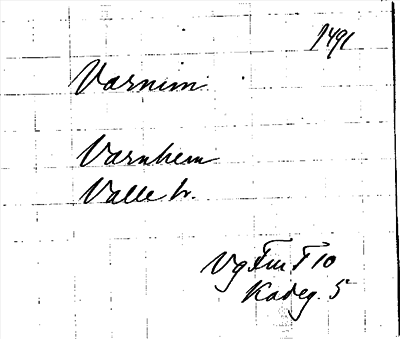 1491
Varnem
Varnhem
Valle hr.
Vg Fm T 10
Kateg. 5